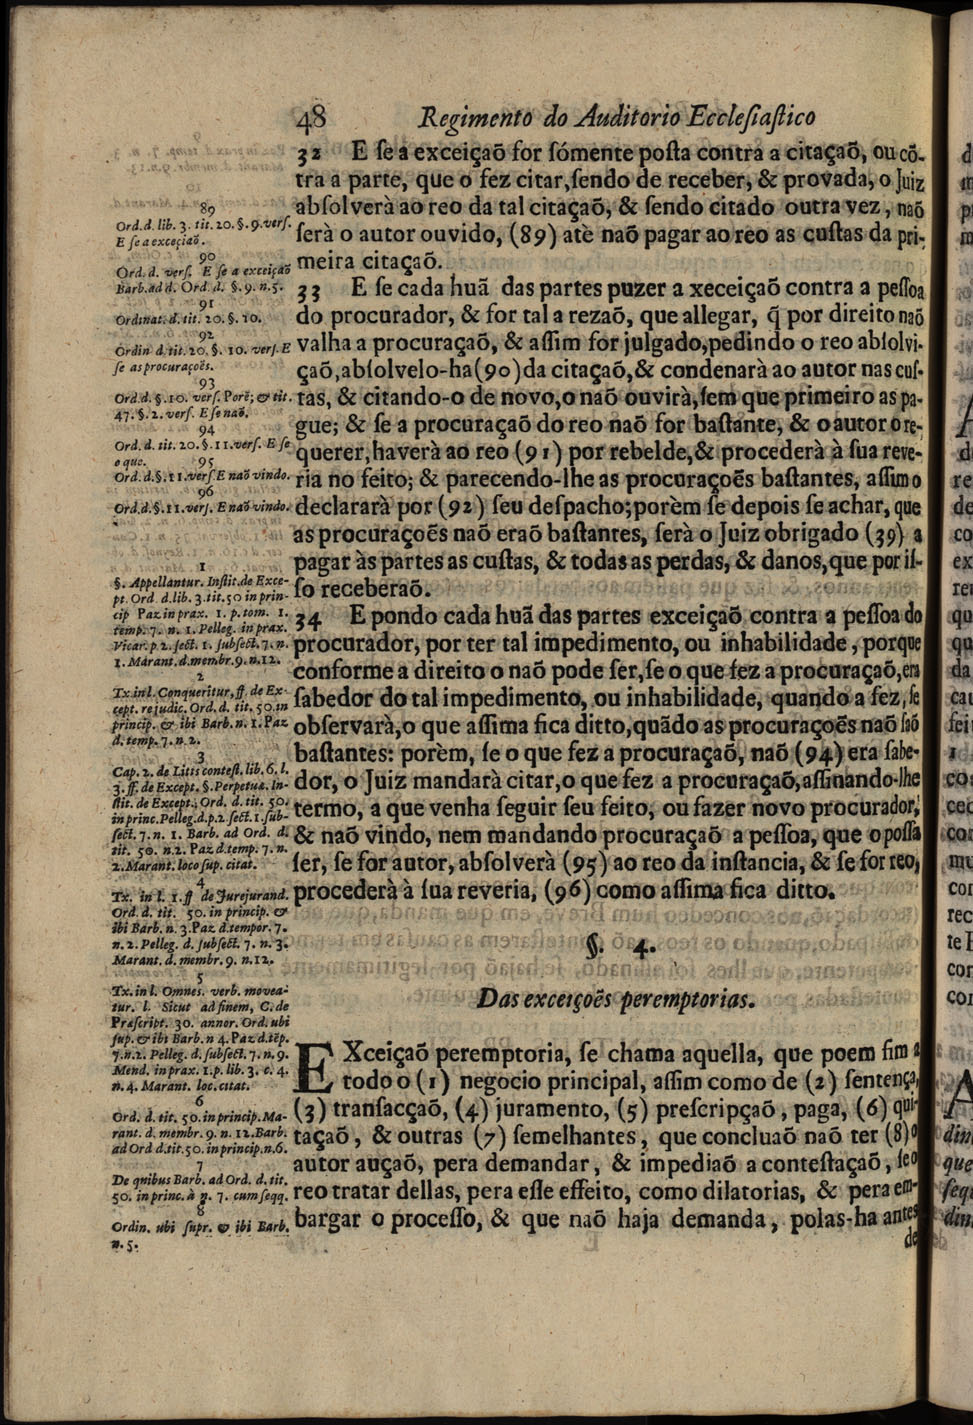 48 Regimento do Auditorio Ecclesiastico
32 E se a exceiçaõ for sómente posta contra a citaçaõ, ou cõ-
tra a parte, que o fez citar, sendo de receber, & provada, o Juiz
absolverà ao reo da tal citaçaõ, & sendo citado outra vez, naõ
serà o autor ouvido, (89) atè naõ pagar ao reo as custas da pri-
meira citaçaõ.
33 E se cada huã das partes puzer a xeceiçaõ contra a pessoa
do procurador, & for tal a rezaõ, que allegar, q̃ por direito naõ
valha a procuraçaõ, & assim for julgado, pedindo o reo absolvi-
çaõ, absolvelo-ha (90) da citaçaõ, & condenarà ao autor nas cus-
tas, & citando-o de novo, o naõ ouvirà, sem que primeiro as pa-
gue; & se a procuraçaõ do reo naõ for bastante, & o autor o re-
querer, haverà ao reo (91) por rebelde, & procederà à sua reve-
ria no feito; & parecendo-lhe as procuraçoẽs bastantes, assim o
declararà por (92) seu despacho; porèm se depois se achar, que
as procuraçoẽs naõ eraõ bastantes, serà o Juiz obrigado (39) a
pagar às partes as custas, & todas as perdas, & danos, que por is-
so receberaõ.
34 E pondo cada huã das partes exceiçaõ contra a pessoa do
procurador, por ter tal impedimento, ou inhabilidade, porque
conforme a direito o naõ pode ser, se o que fez a procuraçaõ, era
sabedor do tal impedimento, ou inhabilidade, quando a fez, se
observarà, o que assima fica ditto, quãdo as procuraçoẽs naõ saõ
bastantes: porèm, se o que fez a procuraçaõ, naõ (94) era sabe-
dor, o Juiz mandarà citar, o que fez a procuraçaõ, assinando-lhe
termo, a que venha seguir seu feito, ou fazer novo procurador,
& naõ vindo, nem mandando procuraçaõ a pessoa, que o possa
ser, se for autor, absolverà (95) ao reo da instancia, & se for reo,
procederà à sua reveria, (96) como assima fica ditto.
§. 4.
Das exceiçoẽs peremptorias.
EXceiçaõ peremptoria, se chama aquella, que poem fim a
todo o (1) negocio principal, assim como de (2) sentença,
(3) transacçaõ, (4) juramento, (5) prescripçaõ, paga, (6) qui-
taçaõ, & outras (7) semelhantes, que concluaõ naõ ter (8) o
autor auçaõ, pera demandar, & impediaõ a contestaçaõ, se o
reo tratar dellas, pera esse effeito, como dilatorias, & pera em-
bargar o processo, & que naõ haja demanda, polas-ha antes
de
89
Ord. d. lib. 3. tit. 20. §. 9. vers.
E se a exceçiaõ.
90
Ord. d. vers. E se a exceiçaõ
Barb. ad d. Ord d. §. 9. n. 5.
91
Ordinat. d. tit. 20. §. 10.
92
Ordin d. tit. 20. §. 10. vers. E
se as procuraçoẽs.
93
Ord. d. §. 10. vers. Porẽ; & tit.
47. §. 2. vers. E se naõ.
94
Ord. d. tit. 20. §. 11. vers. E se
o que.
95
Ord. d. §. 11 vers. E naõ vindo.
96
Ord. d. §. 11. vers. E naõ vindo.
1
§. Appellantur. Instit. de Exce-
pt. Ord d. lib. 3. tit. 50 in prin-
cip Paz in prax. 1. p. tom. 1.
temp. 7. n. 1. Pelleg. in prax.
Vicar. p. 2. sect. 1. subsect. 7. n.
1. Marant. d. membr. 9. n. 12.
2
Tx. in l. Conqueritur, ff. de Ex-
cept. rejudic. Ord. d. tit. 50. in
princip. & ibi Barb. n. 1. Paz
d. temp. 7. n. 2.
3
Cap. 2. de Litis contest. lib. 6. l.
3. ff. de Except. §. Perpetuæ. In-
stit. de Except. Ord. d. tit. 50.
in princ. Pelleg. d. p. 2. sect. 1. sub-
sect. 7. n. 1. Barb. ad Ord. d.
tit. 50. n. 2. Paz d. temp. 7. n.
2. Marant. loco sup. citat.
4
Tx. in l. 1. ff de Jurejurand.
Ord. d. tit. 50. in princip. &
ibi Barb. n. 3. Paz d. tempor. 7.
n. 2. Pelleg. d. subsect. 7. n. 3.
Marant. d. membr. 9. n. 12.
5
Tx. in l. Omnes. verb. movea-
tur. l. Sicut ad finem, C. de
Præscript. 30. annor. Ord. ubi
sup. & ibi Barb. n 4. Paz d. tẽp.
7. n. 2. Pelleg. d. subsect. 7. n. 9.
Mend. in prax. 1. p. lib. 3. c. 4.
n. 4. Marant. loc. citat.
6
Ord. d. tit. 50. in princip. Ma-
rant. d. membr. 9. n. 12. Barb.
ad Ord d. tit. 50. in princip. n. 6.
7
De quibus Barb. ad Ord. d. tit.
50. in princ. à n. 7. cum seqq.
8
Ordin. ubi supr. & ibi Barb.
n. 5.